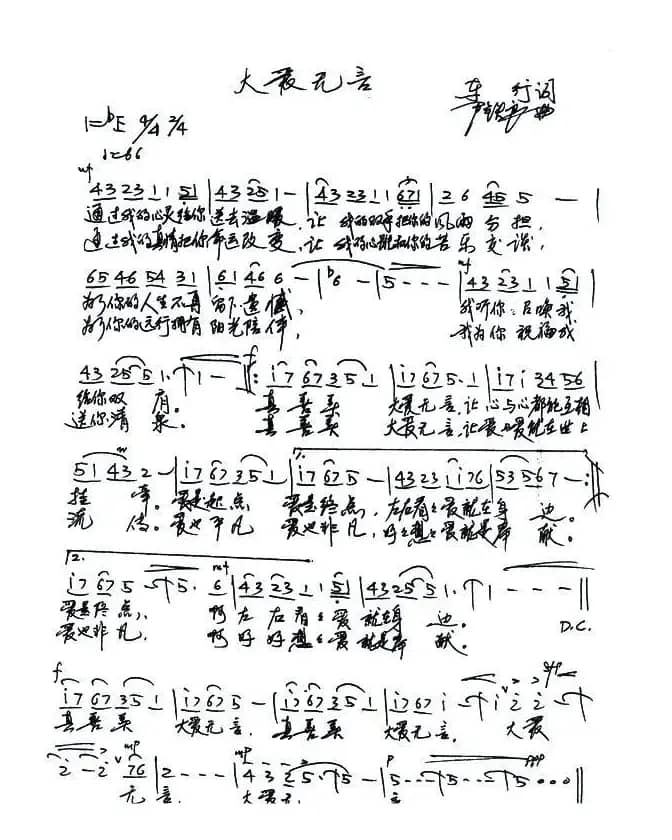 大爱无言
车行词
戚建波曲
1=bE 4/4 2/4
♩=66
mf
4 3 2 3 1 1 5 1 | 4 3 2 5 1 - | 4 3 2 3 1 1 6 7 1 | 2 6 4 5 5 - |
通过我的心灵给你送去温暖,让我的双手把你的风雨分担,
通过我的真情把你命运改变,让我的心跳和你的苦乐交谈,
6 5 4 6 5 4 3 1 | 6 1 4 6 6 - | b6 - | 5 - - - | 4 3 2 3 1 1 5 1 |
为了你的人生不再留下遗憾, 我听你召唤我
为了你的远行拥有阳光陪伴, 我为你祝福我
4 3 2 5 5 1 · | 1 - - f i 7 6 7 3 5 1 | i 7 6 7 5 · 1 | i 7 i 3 4 5 6 |
给你双肩。 真善美 大爱无言,让心与心都能互相
送你清泉。 真善美 大爱无言,让爱与爱能在世上
5 1 4 3 2 - | i 7 6 7 3 5 1 | 1. i 7 6 7 5 - | 4 3 2 3 1 i 7 6 | 5 3 5 6 7 - :||
挂牵。爱是起点 爱是终点,左右看看爱就在身边。
流传。爱也平凡 爱也非凡,好好想想爱就是奉献。
2.
i 7 6 7 5 - | 5 · mf 6 | 4 3 2 3 1 1 5 1 | 4 3 2 5 5 1 · | 1 - - - ||
爱是终点, 啊左右看看爱就在身边。 D.C.
爱也非凡, 啊好好想想爱就是奉献。
f
i 7 6 7 3 5 1 | i 7 6 7 5 - | i 7 6 7 3 5 1 | i 7 6 7 i - | i v i 2 -
真善美 大爱无言, 真善美 大爱无言, 大爱
2 - 2 v mp 7 6 | 2 - - - | mp 4 3 2 5 · 5 - | p 5 - - - 5 - - - 5 ppp 0 0 0 ||
无言, 大爱无言